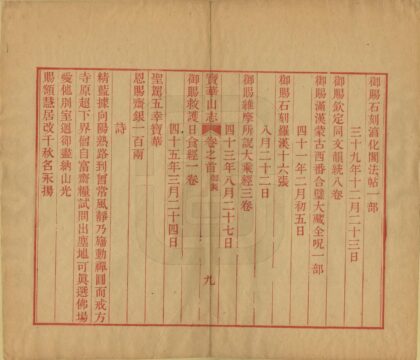 御賜石刻淳化閣法帖一部
三十九年十二月二十三日
御賜欽定同文韻統八卷
御賜滿漢蒙古西番合璧大藏全咒一部
四十一年二月初五日
御賜石刻羅漢十六張
八月二十二日
御賜維摩所說大乘經三卷
四十三年八月二十七日
寶華山志 卷之首 九
御賜救護日食經一卷
四十五年三月二十四日
聖駕五幸寶華
恩賜齋銀一百兩
詩
精藍據向陽熱路到舊常風靜乃旛動禪圓而戒方
寺原超下界僧自富齋糧試問出塵地可眞選佛場
愛他別室迴卻盡納山光
賜額慧居改千秋名永揚